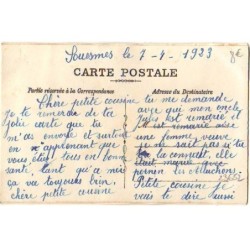 Souesmes le 7-4-1923
8€
CARTE POSTALE
Partie réservée à la Correspondance
Adresse du Destinataire
Chère petite cousine
je te remercie de ta
jolie carte que tu
m'as envoyé et surtout
en m'apprenant que
vous étiez tous en bonne
sante, tant qu'a moi
ça va toujours bien,
chère petite cousine
tu me demande
avec que mon oncle
Jules est remarié et
il est remarié avec
une femme veuve
je ne sait pas si tu
la connait, elle
était marié avec
permis les
Petite cousine je
vais te dire aussi